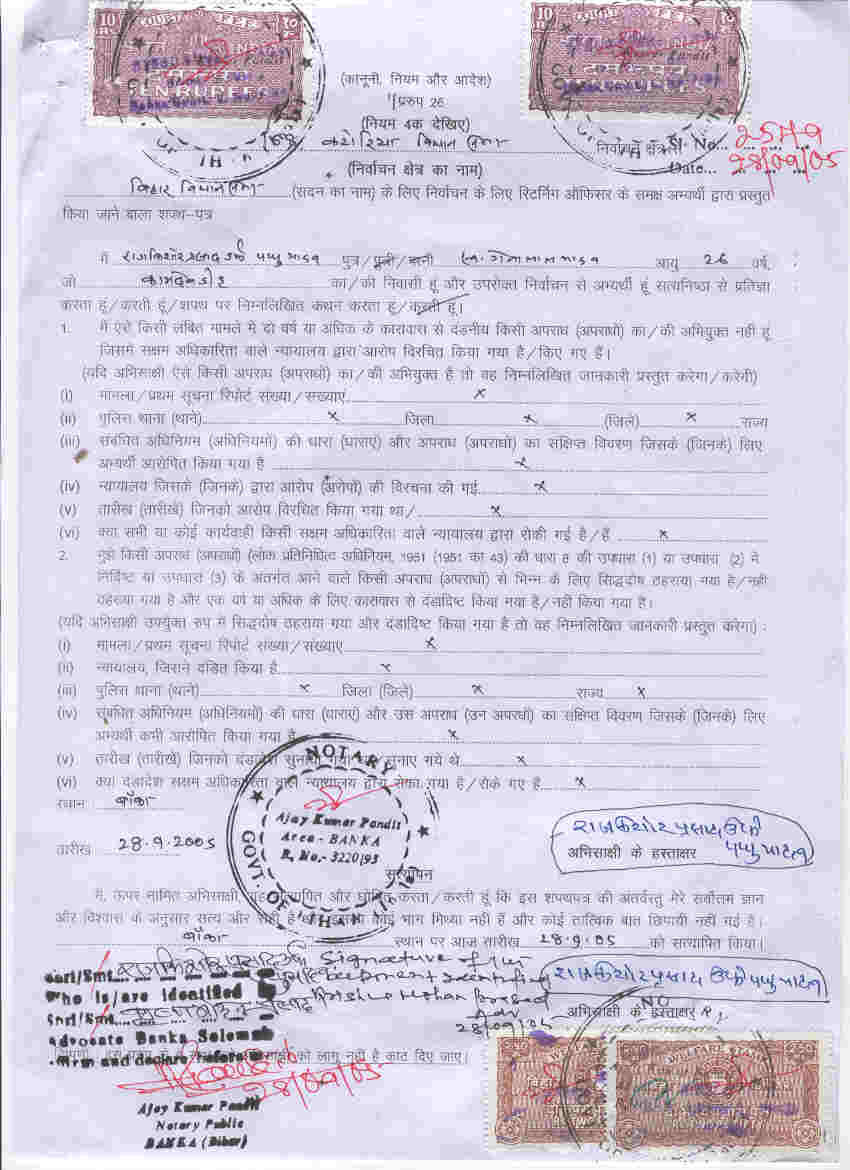 10 COURT FEE १० 10 COURT FEE १०
INDIA
TEN RUPEES
(कानूनी, नियम और आदेश)
प्ररुप 26
(नियम 4क देखिए)
कटोरिया विधान सभा निर्वाचन क्षेत्र Sl. No... 2579
(निर्वाचन क्षेत्र का नाम) Date... 28/09/05
बिहार विधान सभा (सदन का नाम) के लिए निर्वाचन के लिए रिटर्निंग ऑफिसर के समक्ष अभ्यर्थी द्वारा प्रस्तुत
किया जाने बाला शपथ-पत्र
मैं राजकिशोर प्रसाद उर्फ पप्पु यादव पुत्र/पुत्री/पत्नी स्व. यादव आयु 26 वर्ष,
जो का/की निवासी हूं और उपरोक्त निर्वाचन से अभ्यर्थी हूं सत्यनिष्ठा से प्रतिज्ञा
करता हूं/करती हूं/शपथ पर निम्नलिखित कथन करता हूं/करती हूं।
1. मैं ऐसे किसी लंबित मामले मे दो वर्ष या अधिक के कारावास से दंडनीय किसी अपराध (अपराधों) का/की अभियुक्त नही हूं
जिसमें सक्षम अधिकारिता वाले न्यायालय द्वारा आरोप विरचित किया गया है/किए गए हैं।
(यदि अभिसाक्षी ऐसे किसी अपराध (अपराधों) का/की अभियुक्त है तो वह निम्नलिखित जानकारी प्रस्तुत करेगा/करेगी)
(i) मामला/प्रथम सूचना रिपोर्ट संख्या/सख्याएं x
(ii) पुलिस थाना (थाने) x जिला x (जिले) x राज्य
(iii) संबंधित अधिनियम (अधिनियमों) की धारा (धाराएं) और अपराध (अपराधों) का संक्षिप्त विवरण जिसके (जिनके) लिए
अभ्यर्थी आरोपित किया गया है x
(iv) न्यायालय जिसके (जिनके) द्वारा आरोप (आरोपों) की विरचना की गई x
(v) तारीख (तारीखें) जिनको आरोप विरचित किया गया था/ x
(vi) क्या सभी या कोई कार्यवाही किसी सक्षम अधिकारिता वाले न्यायालय द्वारा रोकी गई है/हैं x
2. मुझे किसी अपराध (अपराधों) (लोक प्रतिनिधित्व अधिनियम, 1951 (1951 का 43) की धारा 8 की उपधारा (1) या उपधारा (2) में
निर्दिष्ट या उपधारा (3) के अंतर्गत आने वाले किसी अपराध (अपराधों) से भिन्न के लिए सिद्धदोष ठहराया गया है/नही
ठहराया गया है और एक वर्ष या अधिक के लिए कारावास से दंडादिष्ट किया गया है/नहीं किया गया है।
(यदि अभिसाक्षी उपर्युक्त रूप में सिद्धदोष ठहराया गया और दंडादिष्ट किया गया है तो वह निम्नलिखित जानकारी प्रस्तुत करेगा) :
(i) मामला/प्रथम सूचना रिपोर्ट संख्या/संख्याएं x
(ii) न्यायालय, जिसने दंडित किया है x
(iii) पुलिस थाना (थाने) x जिला (जिले) x राज्य x
(iv) संबंधित अधिनियम (अधिनियमों) की धारा (धाराएं) और उस अपराध (उन अपराधों) का संक्षिप्त विवरण जिसके (जिनके) लिए
अभ्यर्थी कभी आरोपित किया गया है x
(v) तारीख (तारीखें) जिनको दंडादेश सुनाया गया था/सुनाए गये थे x
(vi) क्या दंडादेश सक्षम अधिकारिता वाले न्यायालय द्वारा रोका गया है/रोके गए है x
स्थान बाँका
NOTARY GOVT. OF
Ajay Kumar Pandit
Area - BANKA
R, No.- 3220/95
तारीख 28.9.2005
राजकिशोर प्रसाद उर्फ
पप्पु यादव
अभिसाक्षी के हस्ताक्षर
सत्यापन
मैं, ऊपर नामित अभिसाक्षी, यह सत्यापित और घोषित करता/करती हूं कि इस शपथपत्र की अंतर्वस्तु मेरे सर्वोत्तम ज्ञान
और विश्वास के अनुसार सत्य और सही है कोई भाग मिथ्या नहीं है और कोई तात्विक बात छिपायी नहीं गई है।
बाँका स्थान पर आज सारीख 28.9.05 को सत्यापित किया।
Signature of
राजकिशोर प्रसाद उर्फ पप्पु यादव
Who is/are identified
Sri/Smt
28/09/05
अभिसाक्षी के हस्ताक्षर
advocate Banka
को लागू नहीं है काट दिए जाए।
28/09/05
Ajay Kumar Pandit
Notary Public
BANKA (Bihar)